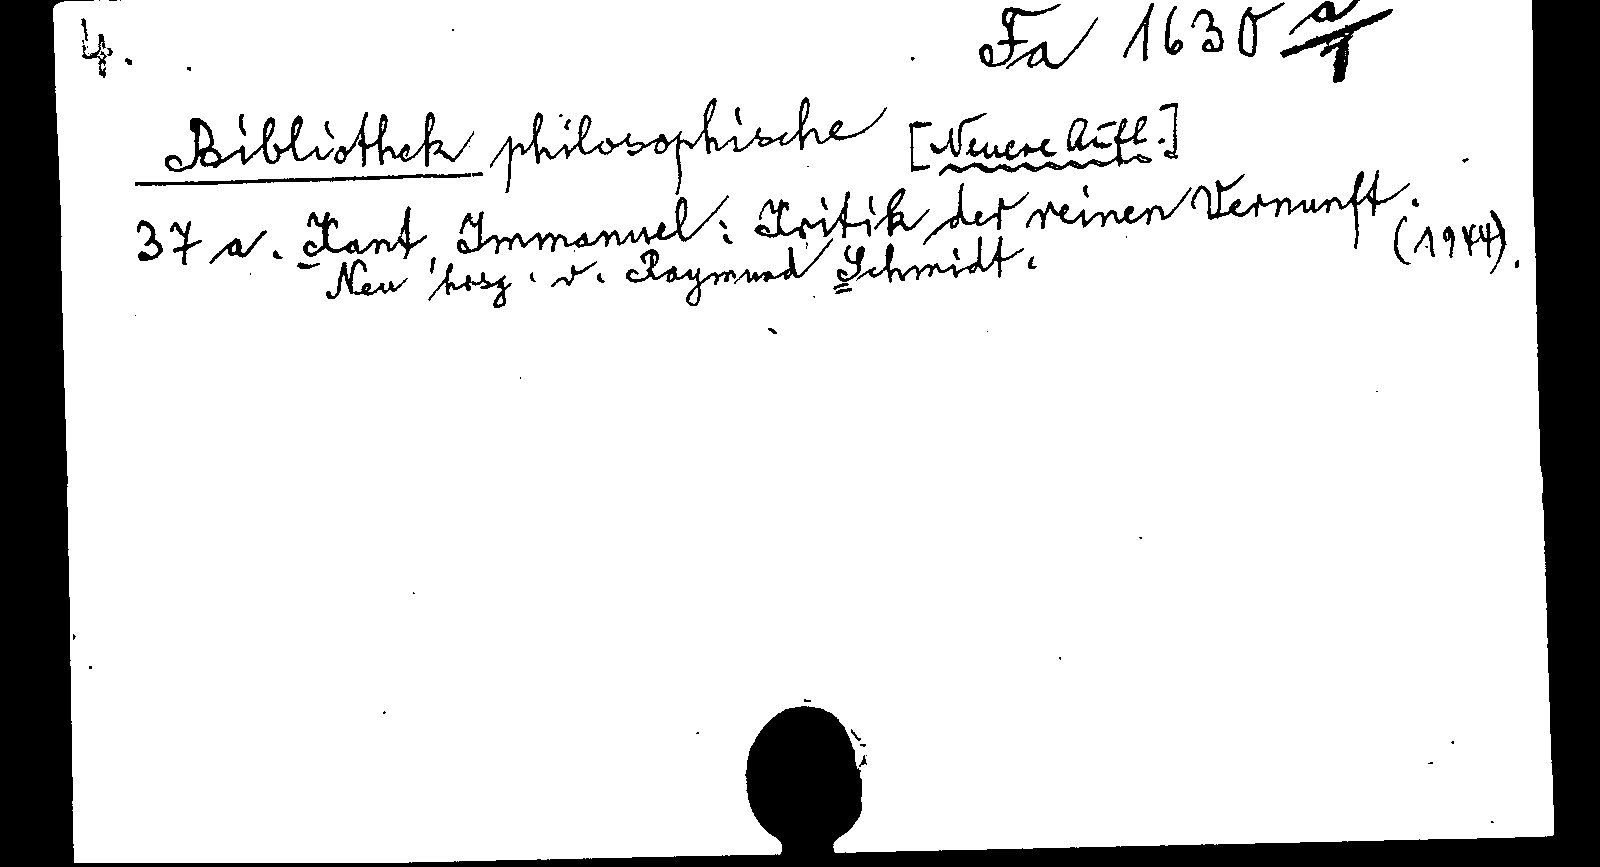 4. Fa 1630 a/1
Bibliothek philosophische [Neuere Aufl.]
37 a. Kant, Immanuel: Kritik der reinen Vernunft. (1944).
Neu hrsg. v. Raymund Schmidt.